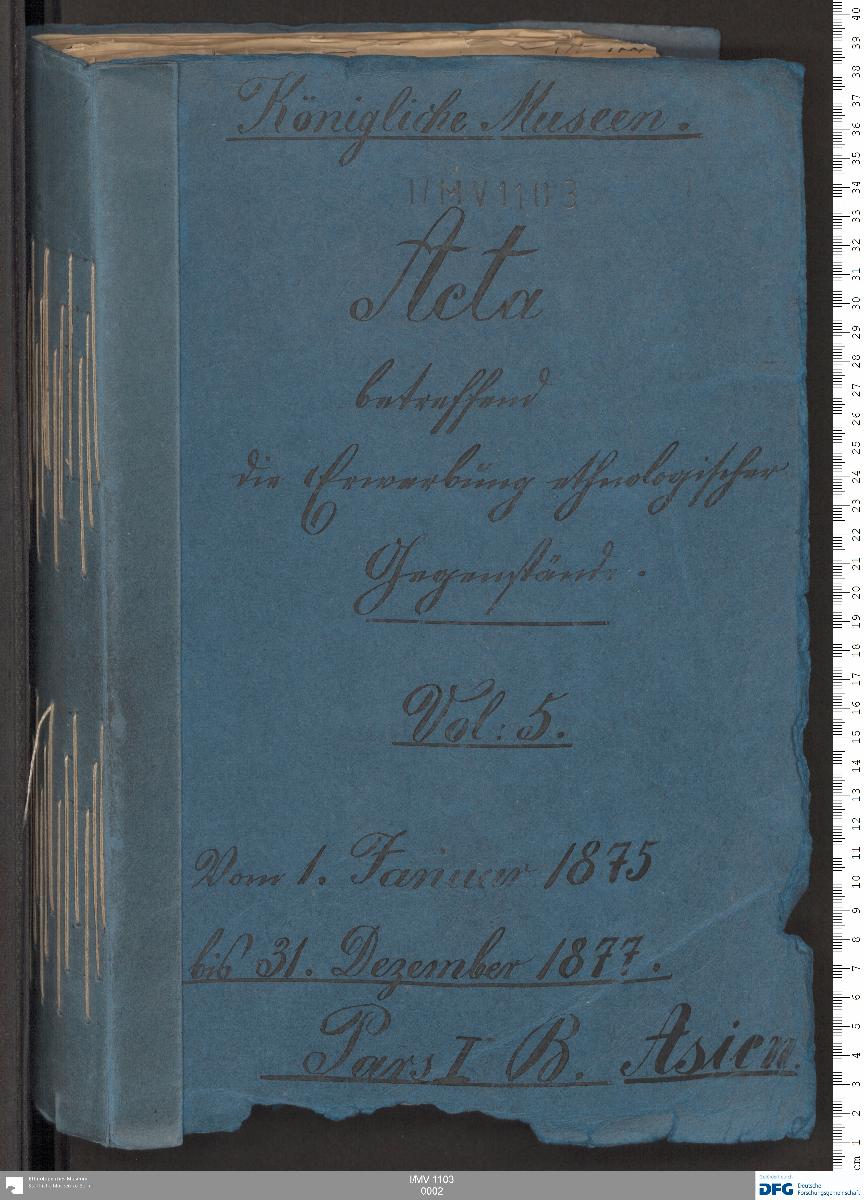 Königliche Museen.
I/MV 1103
Acta
betreffend
die Erwerbung ethnologischer
Gegenstände.
Vol: 5.
Vom 1. Januar 1875
bis 31. Dezember 1877.
Pars I B. Asien.
I/MV 1103
0002
Ethnologisches Museum
Staatliche Museen zu Berlin
DFG Deutsche
Forschungsgemeinschaft
cm 1 2 3 4 5 6 7 8 9 10 11 12 13 14 15 16 17 18 19 20 21 22 23 24 25 26 27 28 29 30 31 32 33 34 35 36 37 38 39 40